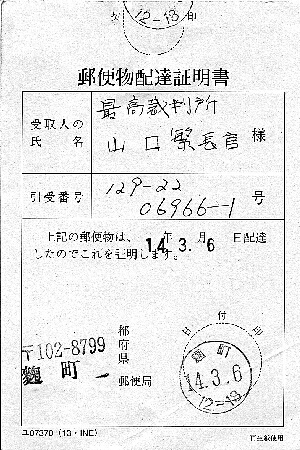 12-18 印
郵便物配達証明書
受取人の氏名 最高裁判所
山口繁長官 様
引受番号 129-22
06966-1 号
上記の郵便物は、14年3月6日配達
したのでこれを証明します。
〒102-8799
麹町
都府県
郵便局
日付印
麹町
14.3.6
12-18
ユ07370 (13・INE)
再生紙使用